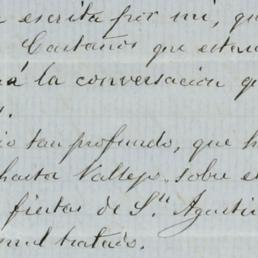 escrita por mi, qu
Castaños que esten
á la conversación q
s.
io tan profundo, que h
hasta Vallejo sobre e
fiestas de Sn. Agusti
mul tratado.